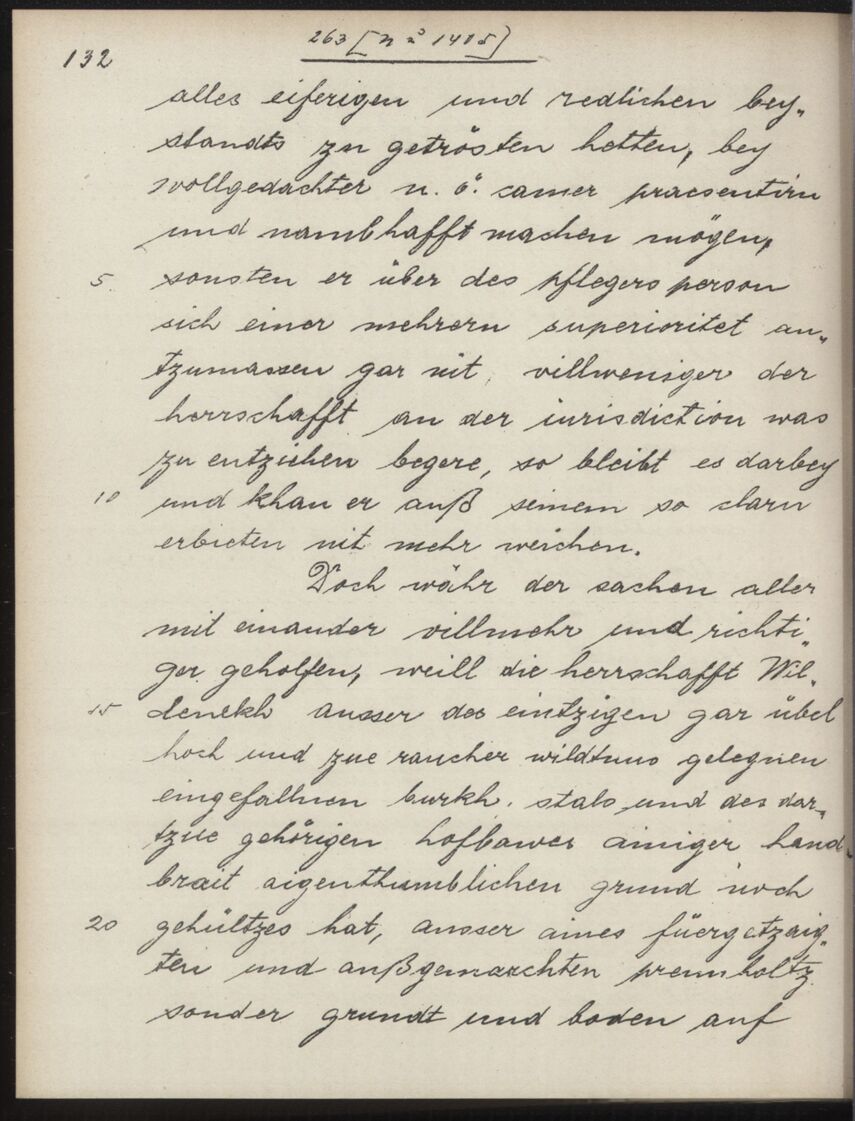 132
263 [N° 1405]
alles eiferigen und redlichen bey„
standts zu getrösten hetten, bey
wollgedachter n. ö. camer praesentirn
und nambhafft machen mögen,
5 sonsten er über des pflegers person
sich einer mehrern superioritet an„
tzumassen gar nit, villweniger der
herrschafft an der iurisdiction was
zu entziehen begere, so bleibt es darbey
10 und khan er auß seinem so clarn
erbieten nit mehr weichen.
Doch währ der sachen aller
mit einander villmehr und richti„
ger geholfen, weill die herrschafft Wil„
15 denekh ausser des eintzigen gar übel
hoch und zue raucher wildtnus gelegnen
eingefallnen burkh. stals und des dar„
tzue gehörigen hofbawes ainiger hand„
brait aigenthumblichen grund noch
20 gehültzes hat, ausser aines füergetzaig„
ten und außgemarchten prennholtz
sonder grundt und boden auf